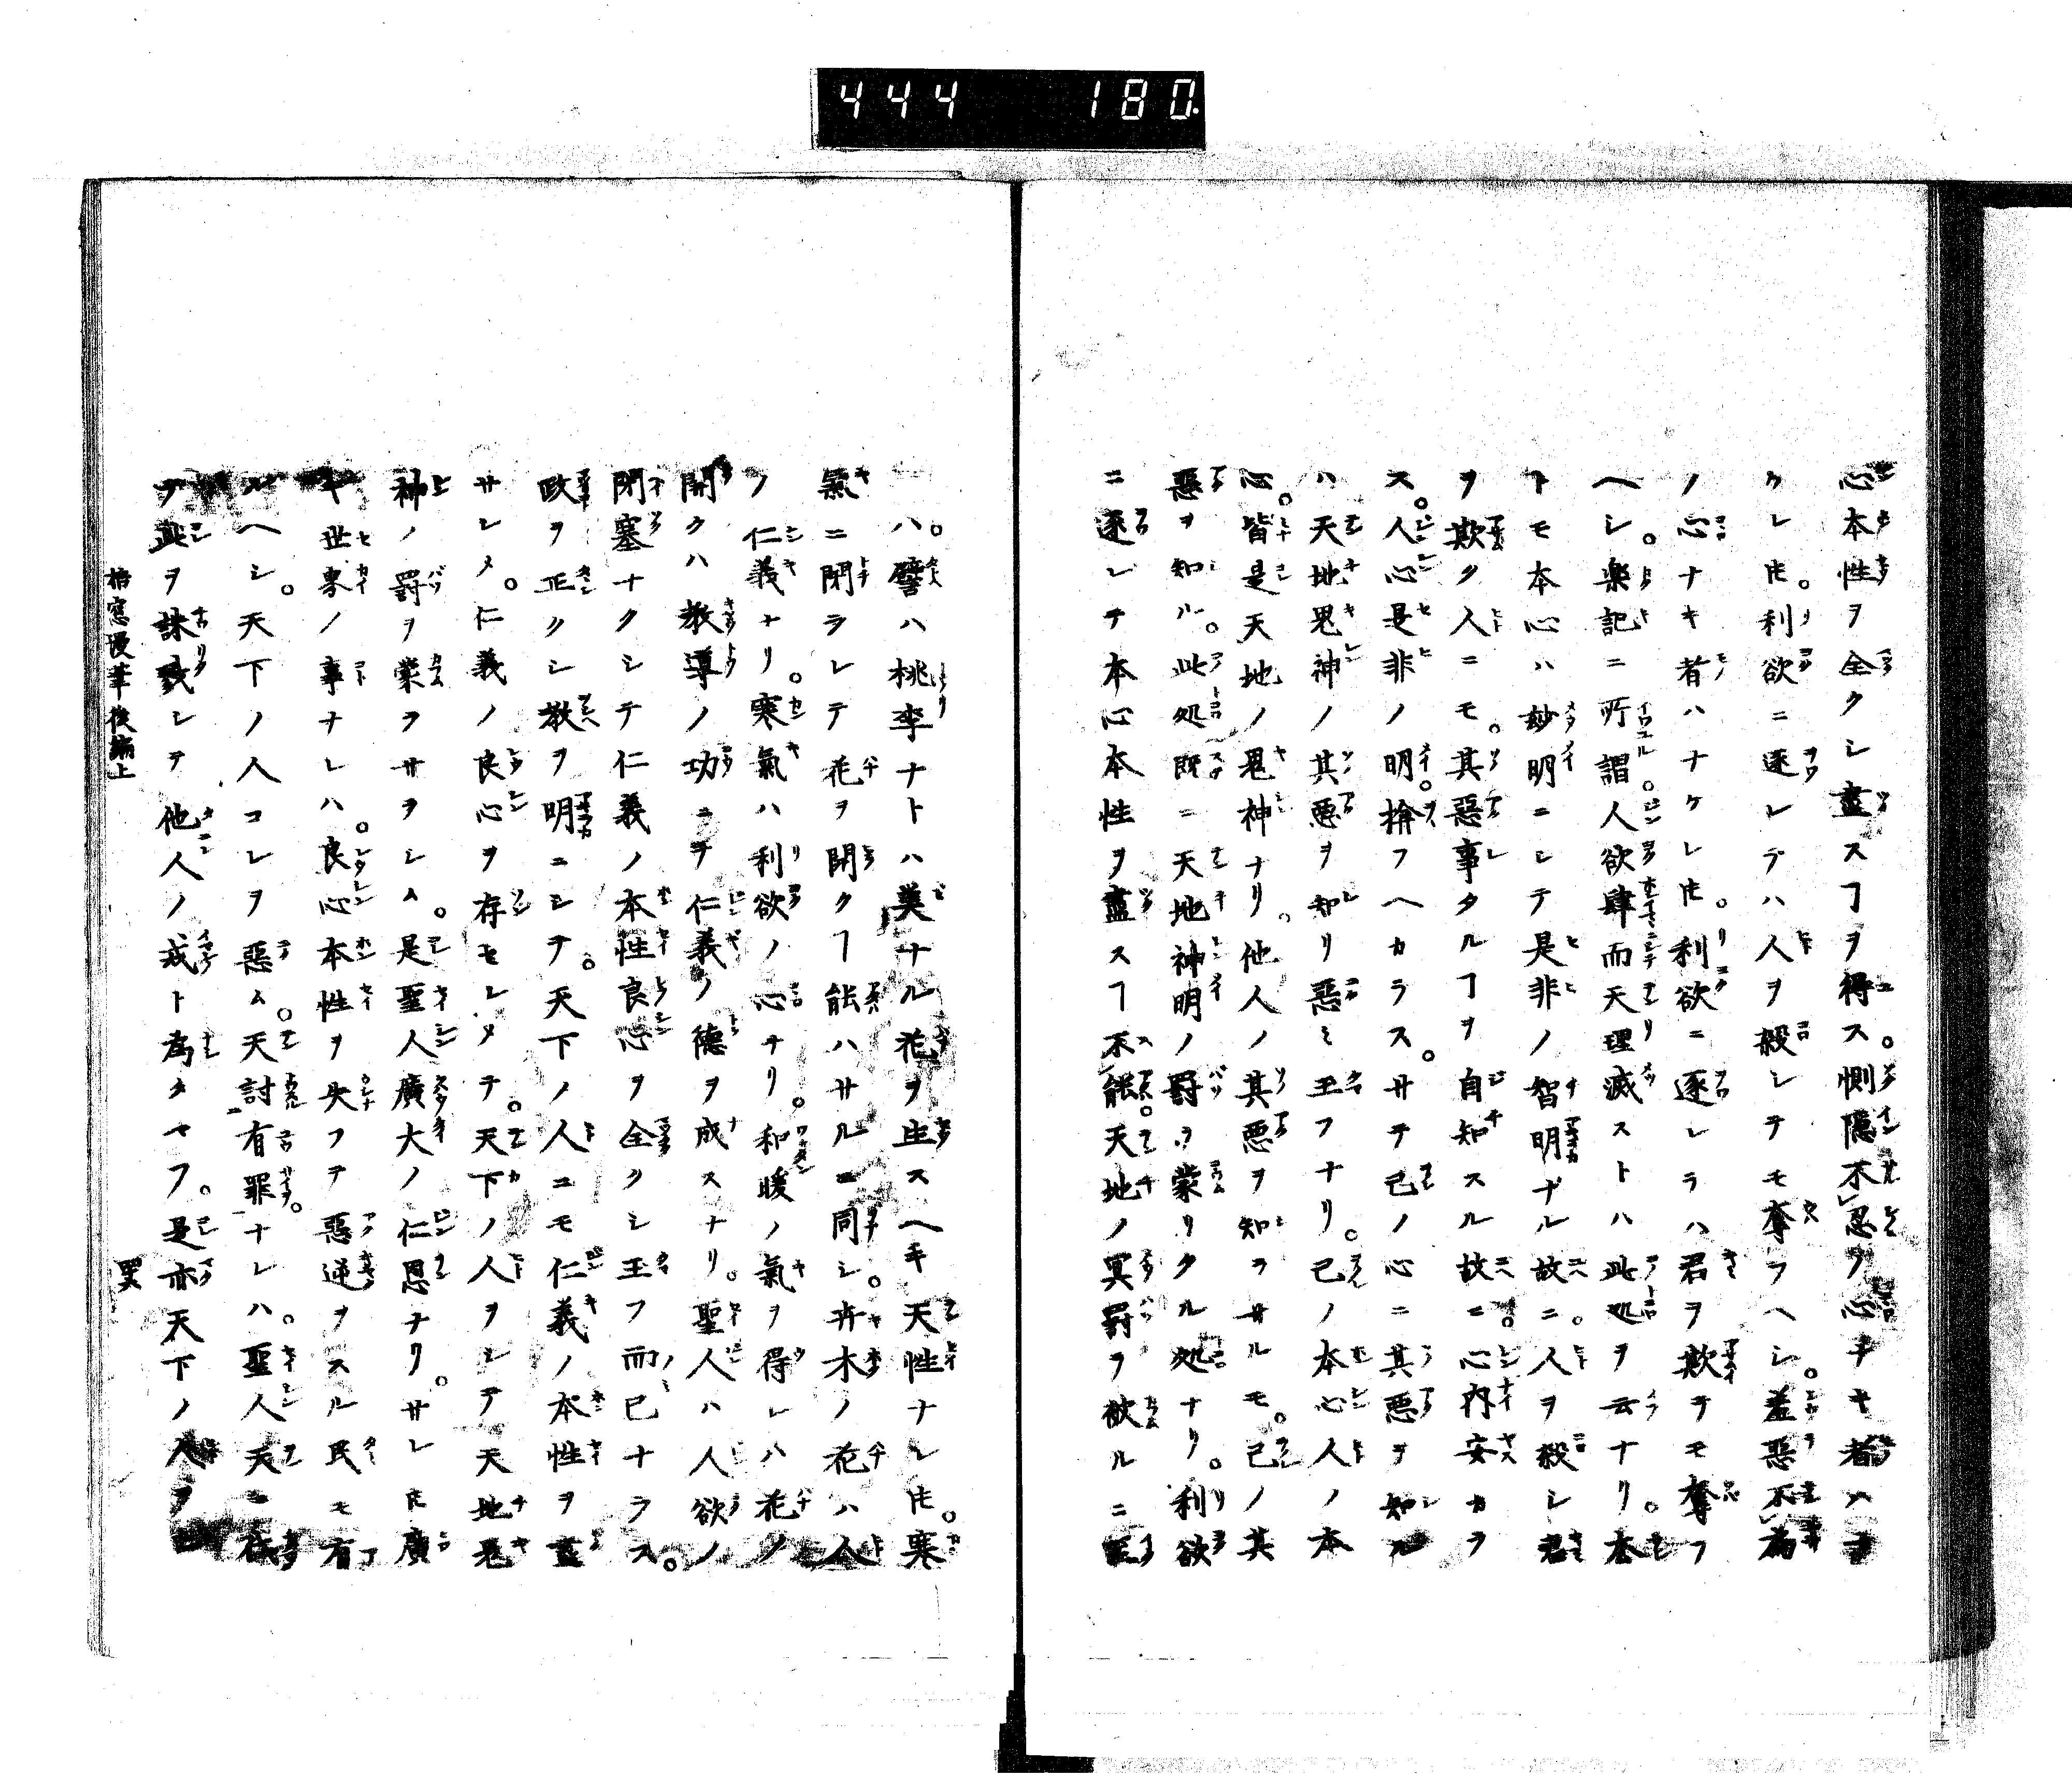 444 180.
心本性ヲ全クシ盡スヿヲ得ス。惻隠不忍ノ心ナキ者ハナ
ケレ𪜈。利欲ニ逐レテハ人ヲ殺シテモ奪フヘシ。羞惡不為
ノ心ナキ者ハナケレ𪜈。利欲ニ逐レラハ君ヲ欺テモ奪フ
ヘシ。楽記ニ所謂。人欲肆而天理滅ストハ此処ヲ云ナリ。本
トモ本心ハ妙明ニシテ是非ノ智明ナル故ニ。人ヲ殺シ君
ヲ欺ク人ニモ。其惡事タルヿヲ自知スル故ニ。心内安カラ
ス。人心是非ノ明。揜フヘカラス。サテ己ノ心ニ其悪ヲ知ル
ハ天地鬼神ノ其悪ヲ知リ惡ミ玉フナリ。己ノ本心人ノ本
心。皆是天地ノ鬼神ナリ。他人ノ其悪ヲ知ラサルモ。己ノ其
惡ヲ知ル。此処既ニ天地神明ノ罸ヲ蒙リタル処ナリ。利欲
ニ逐レテ本心本性ヲ盡スヿ不能。天地ノ冥罸ヲ被ルニ至
ハ。譬ハ桃李ナトハ美ナル花ヲ生スヘキ天性ナレ𪜈。寒
氣ニ閉ラレテ花ヲ開クヿ能ハサルニ同シ。卉木ノ花ハ人
ノ仁義ナリ。寒氣ハ利欲ノ心ナリ。和暖ノ氣ヲ得レハ花ノ
開クハ教導ノ功ニテ仁義ノ德ヲ成スナリ。聖人ハ人欲ノ
閉塞ナクシテ仁義ノ本性良心ヲ全クシ玉フ而已ナラス。
政ヲ正クシ教ヲ明ニシテ。天下ノ人ニモ仁義ノ本性ヲ盡
サレメ。仁義ノ良心ヲ存セシメテ。天下ノ人ヲシテ天地鬼
神ノ罸ヲ蒙ラサラシム。是聖人廣大ノ仁恩ナリ。サレ𪜈廣
キ世界ノ事ナレハ。良心本性ヲ失フテ惡逆ヲスル民モ有
ルヘシ。天下ノ人コレヲ惡ム。天討有罪。ナレハ。聖人天ニ
テ此ヲ誅戮シテ他人ノ戒ト為タマフ。是亦天下ノ人ヲ
梧窓漫筆後編上